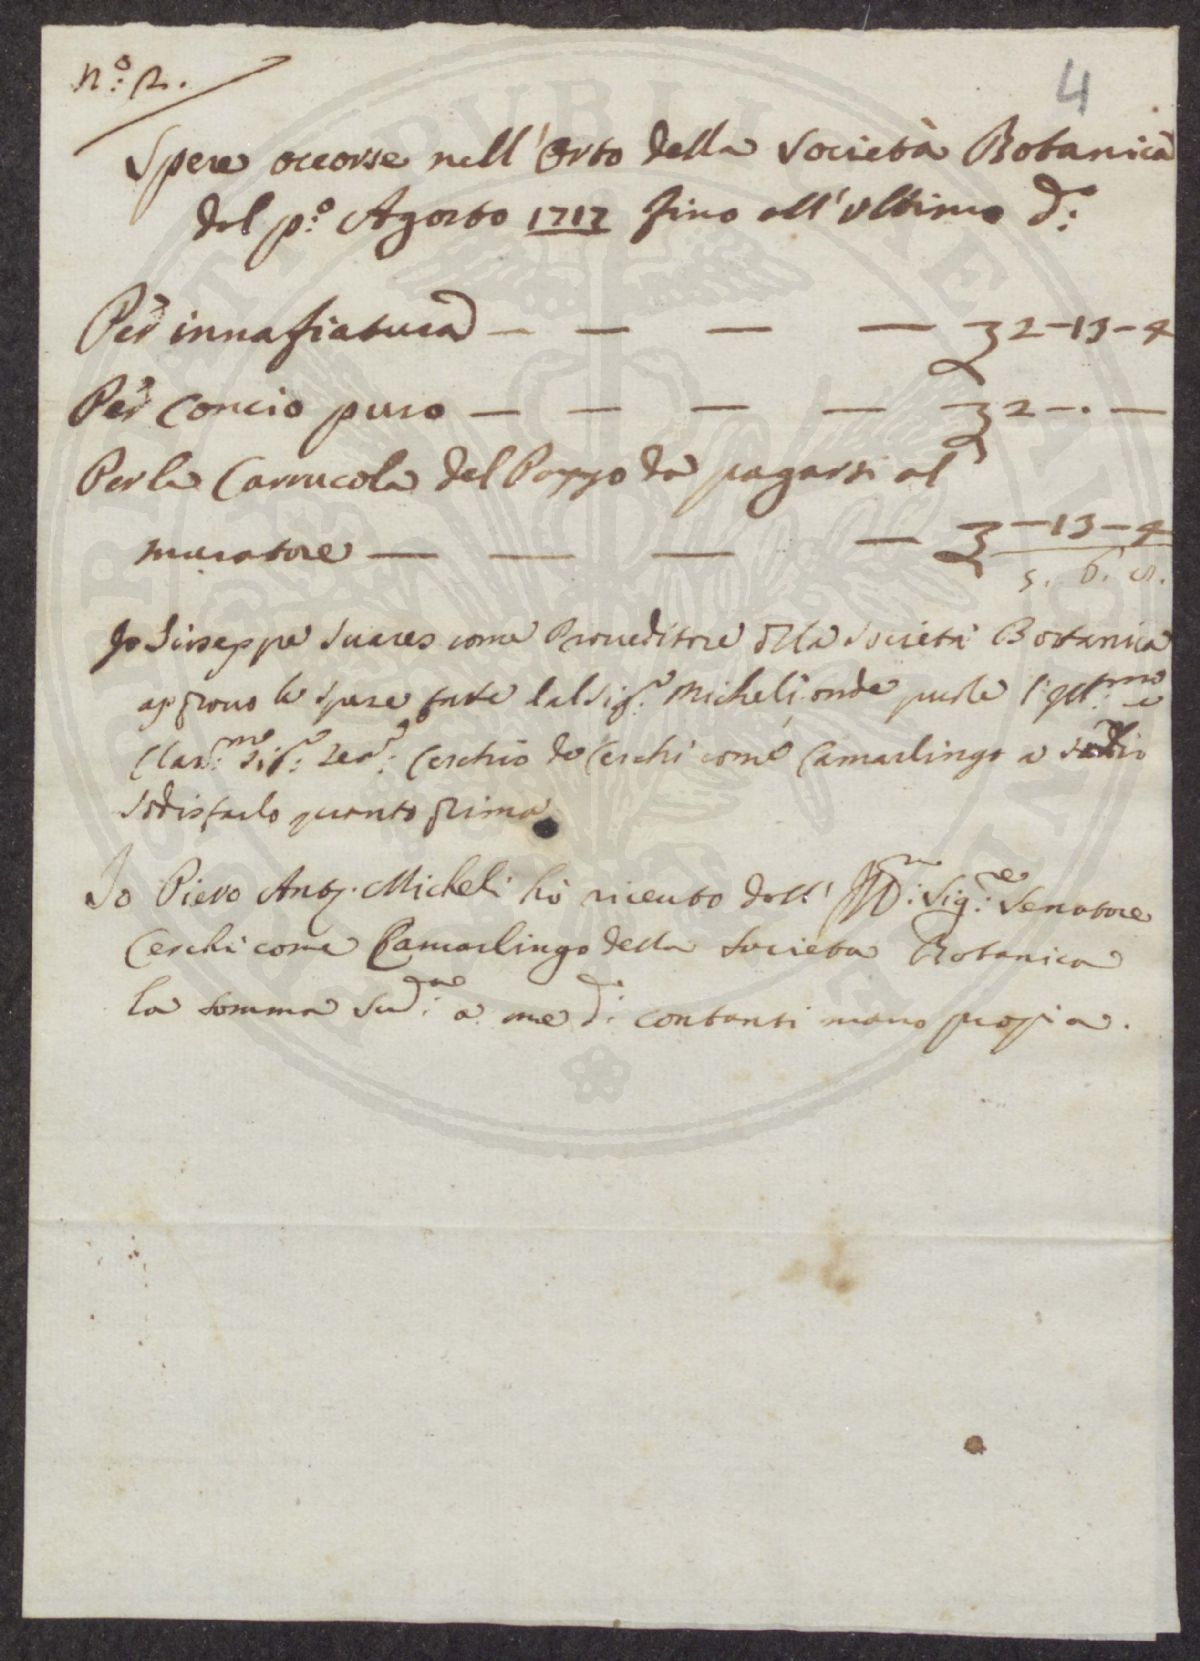 n.o 2.
4
Spese occorse nell'Orto della Società Botanica
dal p.o Agosto 1717 fino all'ultimo d.o
Per innafiatura — — — — 2-13-4
Per Concio puro — — — — 2-.-
Per la Carrucola del Pozzo da pagarsi al
muratore — — — — -13-4
5. 6. 8.
Io Giuseppe Suares come Proveditore della Società Botanica
approvo le spese fatte dal Sig.re Micheli, onde puole l'Ill.mo e
Clar.mo Sig.re Sen.re Cerchio de Cerchi come Camarlingo a
sodisfarlo quanto prima
Io Piero Ant.o Micheli hò riceuto dall' Ill.mo Sig.re Senatore
Cerchi come Camarlingo della Società Botanica
la somma sud.a a me d.o contanti mano propia.